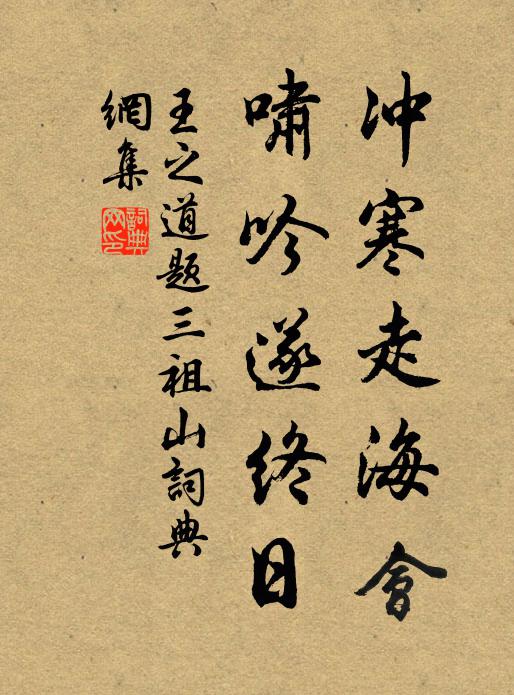 冲寒走海會
嘯吟遂终日
王之道题三祖山詞典
網集
詞典网印